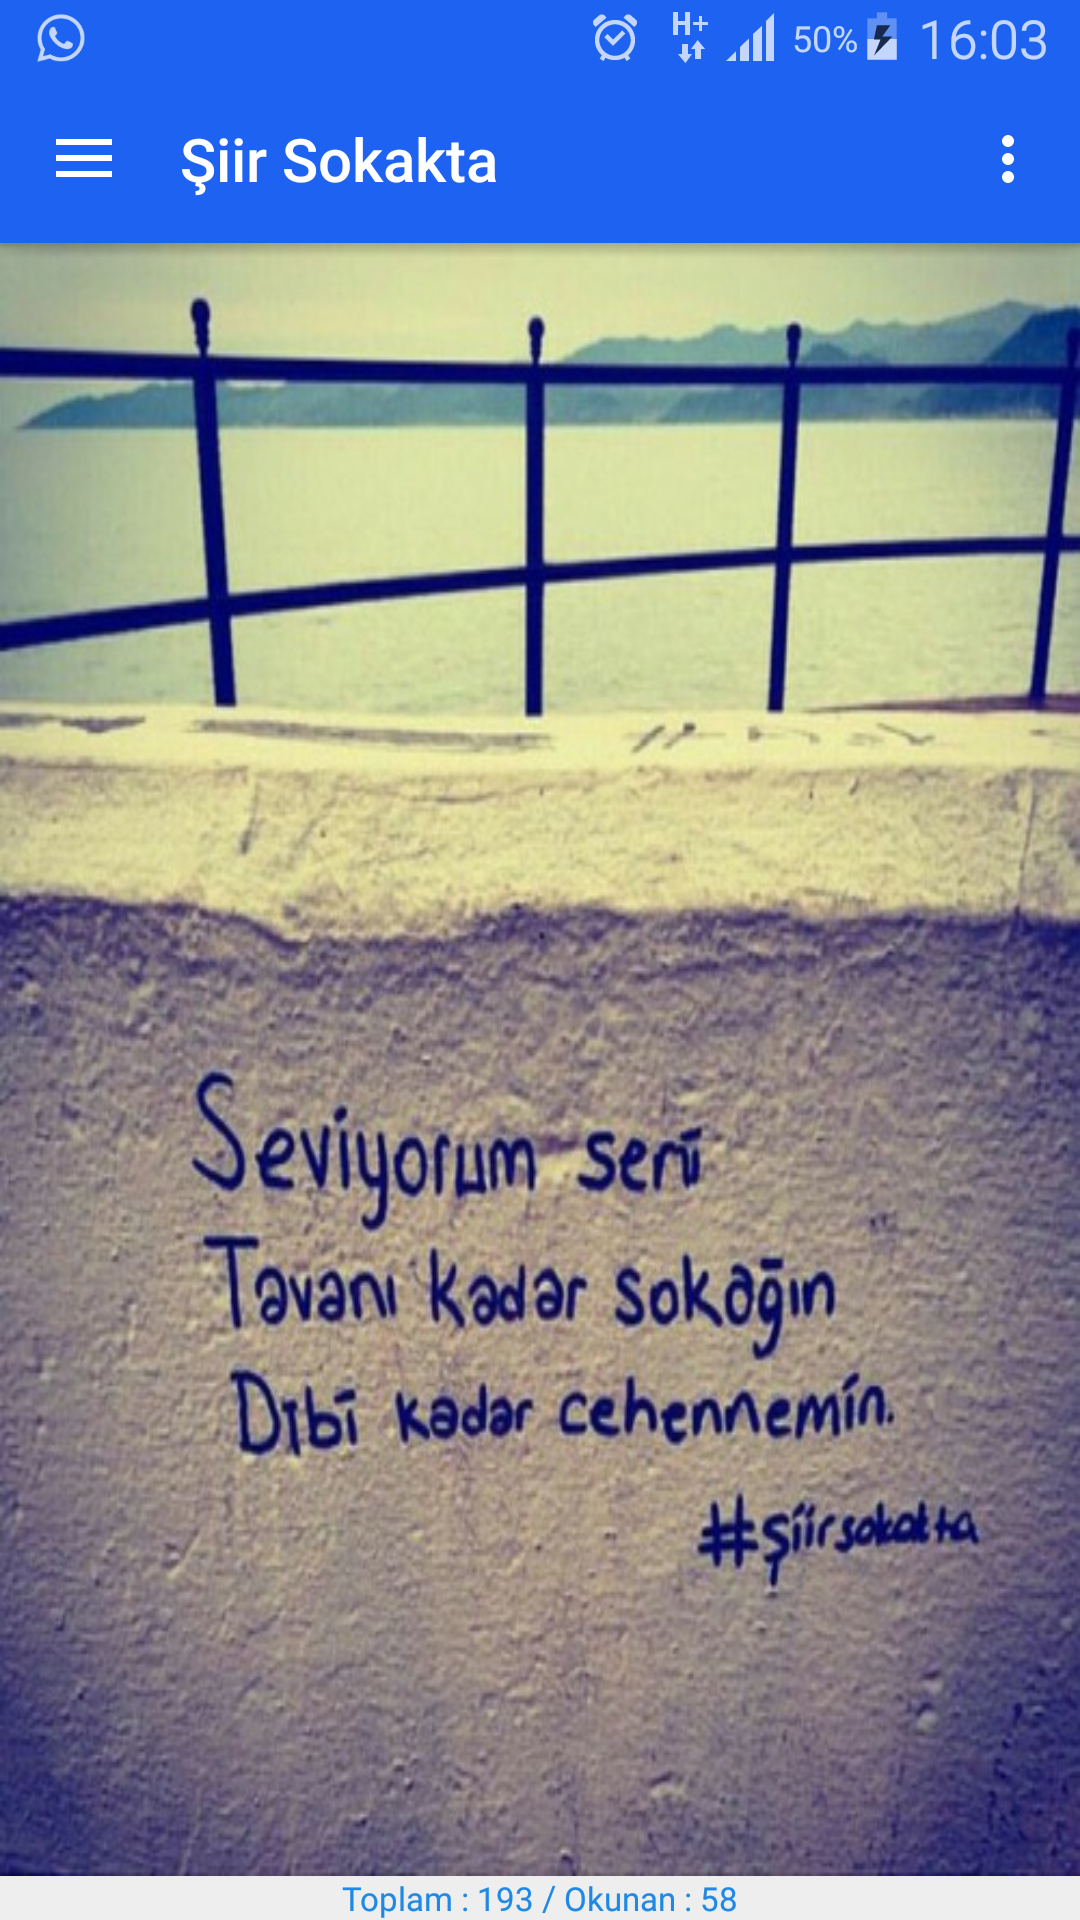 50% 16:03
Şiir Sokakta
Seviyorum seni
Tavanı kadar sokağın
Dibi kadar cehennemin.
#şiirsokakta
Toplam : 193 / Okunan : 58